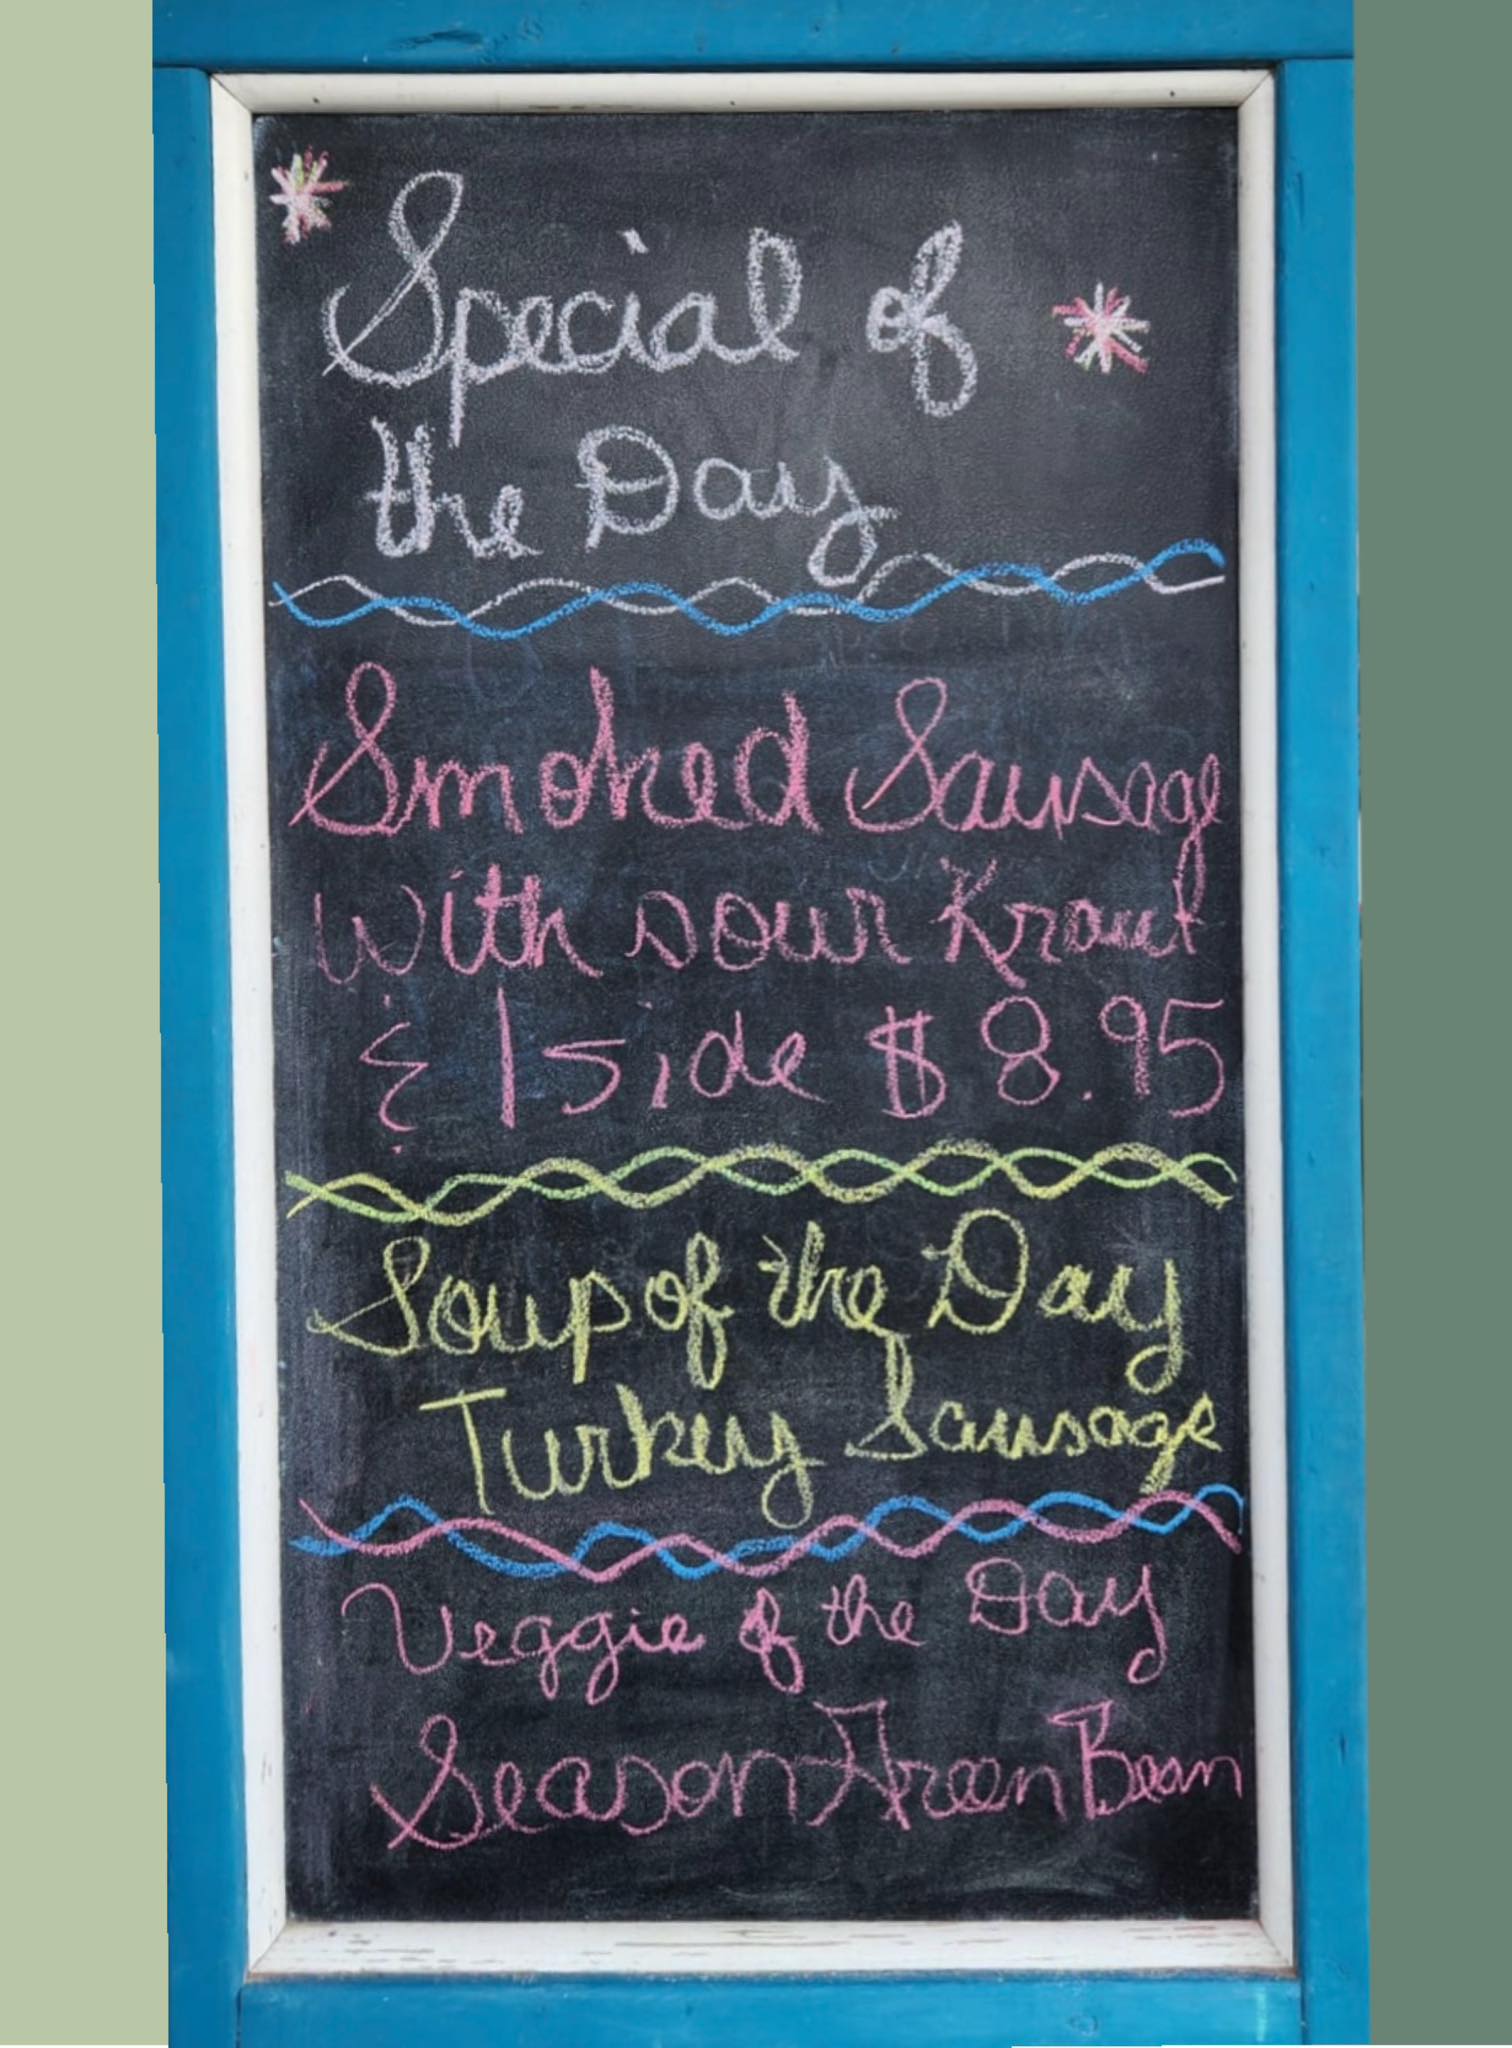 Special of
the Day
Smoked Sausage
with sour Kraut
& 1 side $8.95
Soup of the Day
Turkey Sausage
Veggie of the Day
Season Green Bean